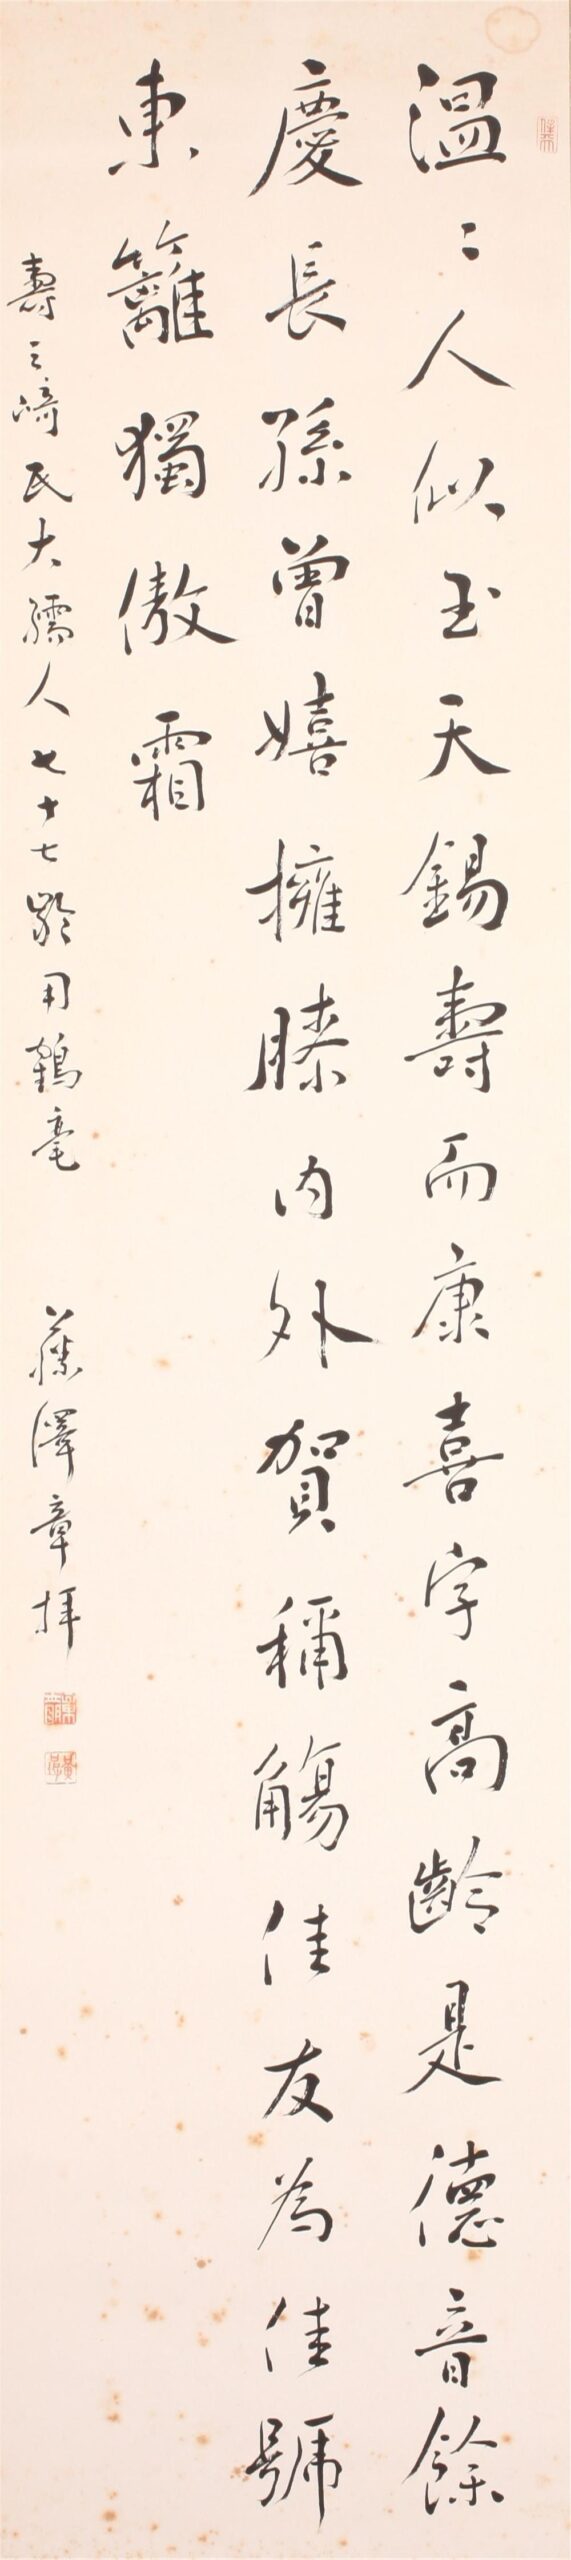 温〻人似玉天錫壽而康喜字高齡是德音餘
慶長孫曾嬉擁膝内外賀稱觴佳友為佳號
東籬獨傲霜
壽三崎氏大孺人七十七齡用鶴毫
藤澤章拜